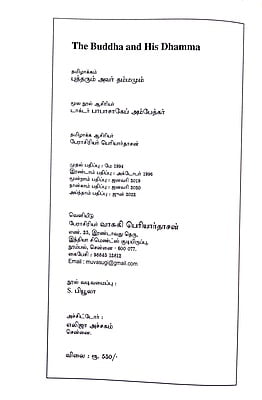 The Buddha and His Dhamma
தமிழாக்கம்
புத்தரும் அவர் தம்மமும்
மூல நூல் ஆசிரியர்
டாக்டர் பாபாசாகேப் அம்பேத்கர்
தமிழாக்க ஆசிரியர்
பேராசிரியர் பெரியார்தாசன்
முதல் பதிப்பு : மே 1994
இரண்டாம் பதிப்பு : அக்டோபர் 1996
மூன்றாம் பதிப்பு : ஜனவரி 2019
நான்காம் பதிப்பு : ஜனவரி 2020
ஐந்தாம் பதிப்பு : ஜூன் 2022
வெளியீடு
பேராசிரியர் வாசுகி பெரியார்தாசன்
எண். 23, இரண்டாவது தெரு,
இந்தியா சிமெண்ட்ஸ் குடியிருப்பு,
நூம்பல், சென்னை - 600 077.
கைபேசி :
Email : muvasugi@gmail.com
நூல் வடிவமைப்பு :
S. பியூலா
அச்சிட்டோர் :
எலிஜா அச்சகம்
சென்னை.
விலை : ரூ. 550/-